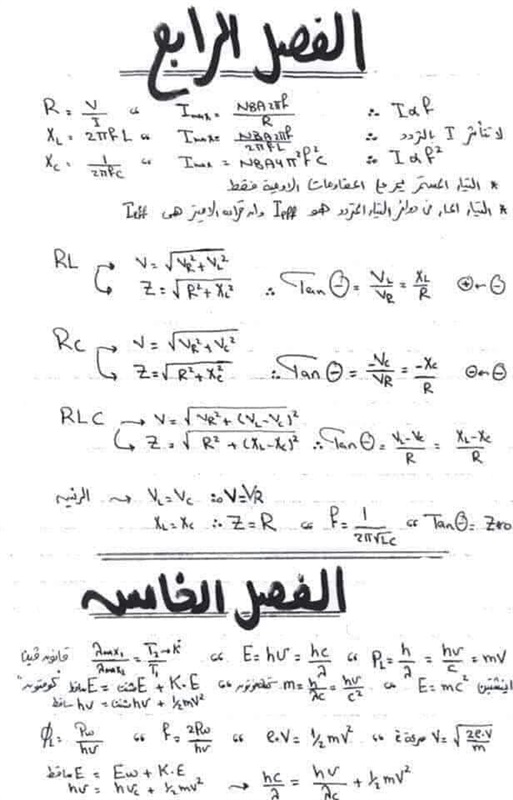 الفصل الرابع
R = V/I ،، Imax = NBA2πf/R ∴ I α f
XL = 2πfL ،، Imax = NBA2πf/2πfL لا تتأثر I بالتردد
XC = 1/2πfC ،، Imax = NBA4π²f²C ∴ I α f²
* التيار المستمر يمر في المقاومات الاومية فقط
* التيار المار في دوائر التيار المتردد هو Ieff وان قراءة الاميتر هى Ieff
RL → V = √VR² + VL²
↳ Z = √R² + XL² ∴ Tan θ = VL/VR = XL/R ⊕ ← θ
RC → V = √VR² + VC²
↳ Z = √R² + XC² ∴ Tan θ = -VC/VR = -XC/R ⊖ ← θ
RLC → V = √VR² + (VL-VC)²
↳ Z = √R² + (XL-XC)² ∴ Tan θ = VL-VC/R = XL-XC/R
الرنين → VL = VC ∴ V = VR
XL = XC ∴ Z = R ،، f = 1/2π√LC ،، Tan θ = Zero
الفصل الخامس
قانون فين λmax1/λmax2 = T2/T1 → K ،، E = hυ = hc/λ ،، PL = h/λ = hυ/c = mV
"كومتون" E ساقط = E مشتت + K.E ،، m فوتون = h/λc = hυ/c² ،، E = mc² اينشتين
hυ ساقط = hυ مشتت + 1/2 mV²
φL = Pw/hυ ،، F = 2Pw/hυ ،، e.V = 1/2 mV² ،، V سرعة e = √2e.V/m
E ساقط = Ew + K.E
hυ = hυc + 1/2 mV² → hc/λ = hυ/λc + 1/2 mV²